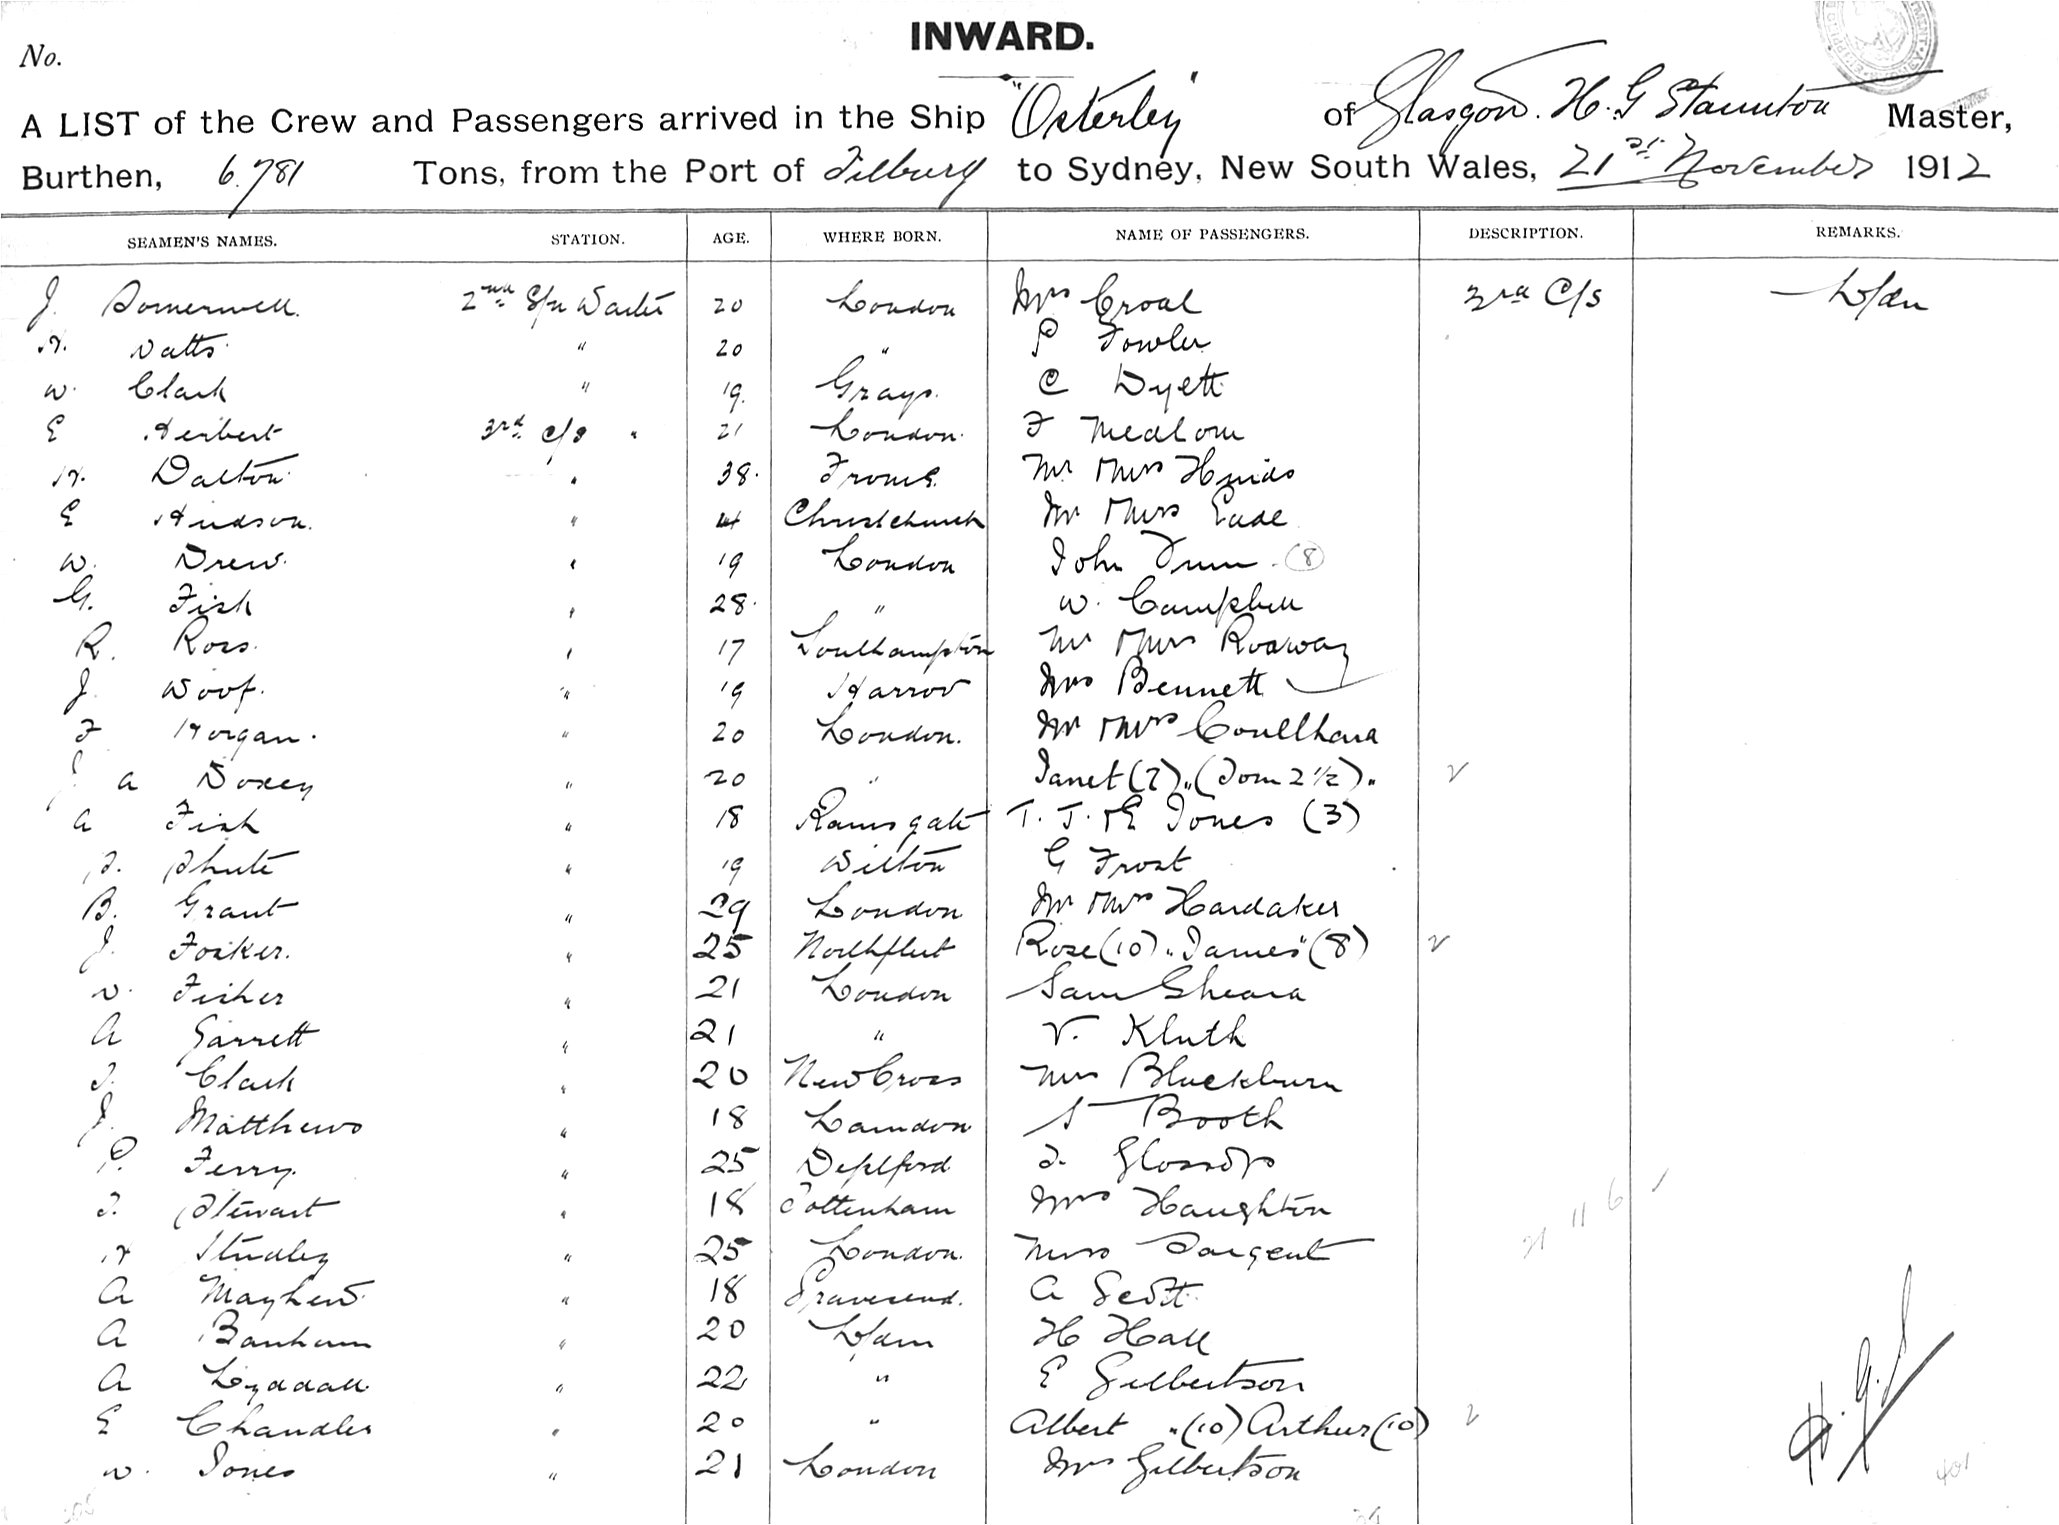 No.
INWARD.
A LIST of the Crew and Passengers arrived in the Ship "Osterley" of Glasgow. H. G Staunton Master,
Burthen, 6.781 Tons, from the Port of Tilbury to Sydney, New South Wales, 21st November 1912
SEAMEN'S NAMES. STATION. AGE. WHERE BORN. NAME OF PASSENGERS. DESCRIPTION. REMARKS.
J. Somerwell. 2nd S/n Waiter 20 London Mrs Croal 3rd C/s
H. Watts " 20 " P Fowler
W. Clark " 19. Grays. C Dyett
E Herbert 3rd c/s " 21 London. F
H. Dalton " 38. Frome. Mr & Mrs Hinds
E Hudson. " Christchurch Mr & Mrs Eade
W. Drew. " 19 London John Dunn (8)
G. Fish " 28. " W. Campbell
R. Ross. " 17 Southampton Mr & Mrs
J. Woof. " 19 Harrow Mrs Bennett
F Horgan. " 20 London. Mr & Mrs
J. A Doxey " 20 " Janet (7) " (Tom 2 1/2) "
A Fish " 18 Ramsgate T. J. & E Jones (3)
S. Shute " 19 Wilton G Frost
B. Grant " 29 London Mr & Mrs Hardaker
J. Fosker. " 25 Northfleet Rose (10) " James " (8)
W. Fisher " 21 London Sam
A Garrett " 21 " V. Kluth
T. Clark " 20 New Cross Mrs Blackburn
J. Matthews " 18 S Booth
P. Ferry. " 25 Deptford T. Glossop
T. Stewart " 18 Tottenham Mrs Haughton
H Studley " 25 London. Miss Sargent
A Mayhew. " 18 Gravesend. A Scott.
A Banham " 20 H Hall
A Lyddall " 22 " E Gilbertson
E Chandler " 20 " Albert " (10) Arthur (10)
W. Jones " 21 London Mrs Gilbertson
H. G. S